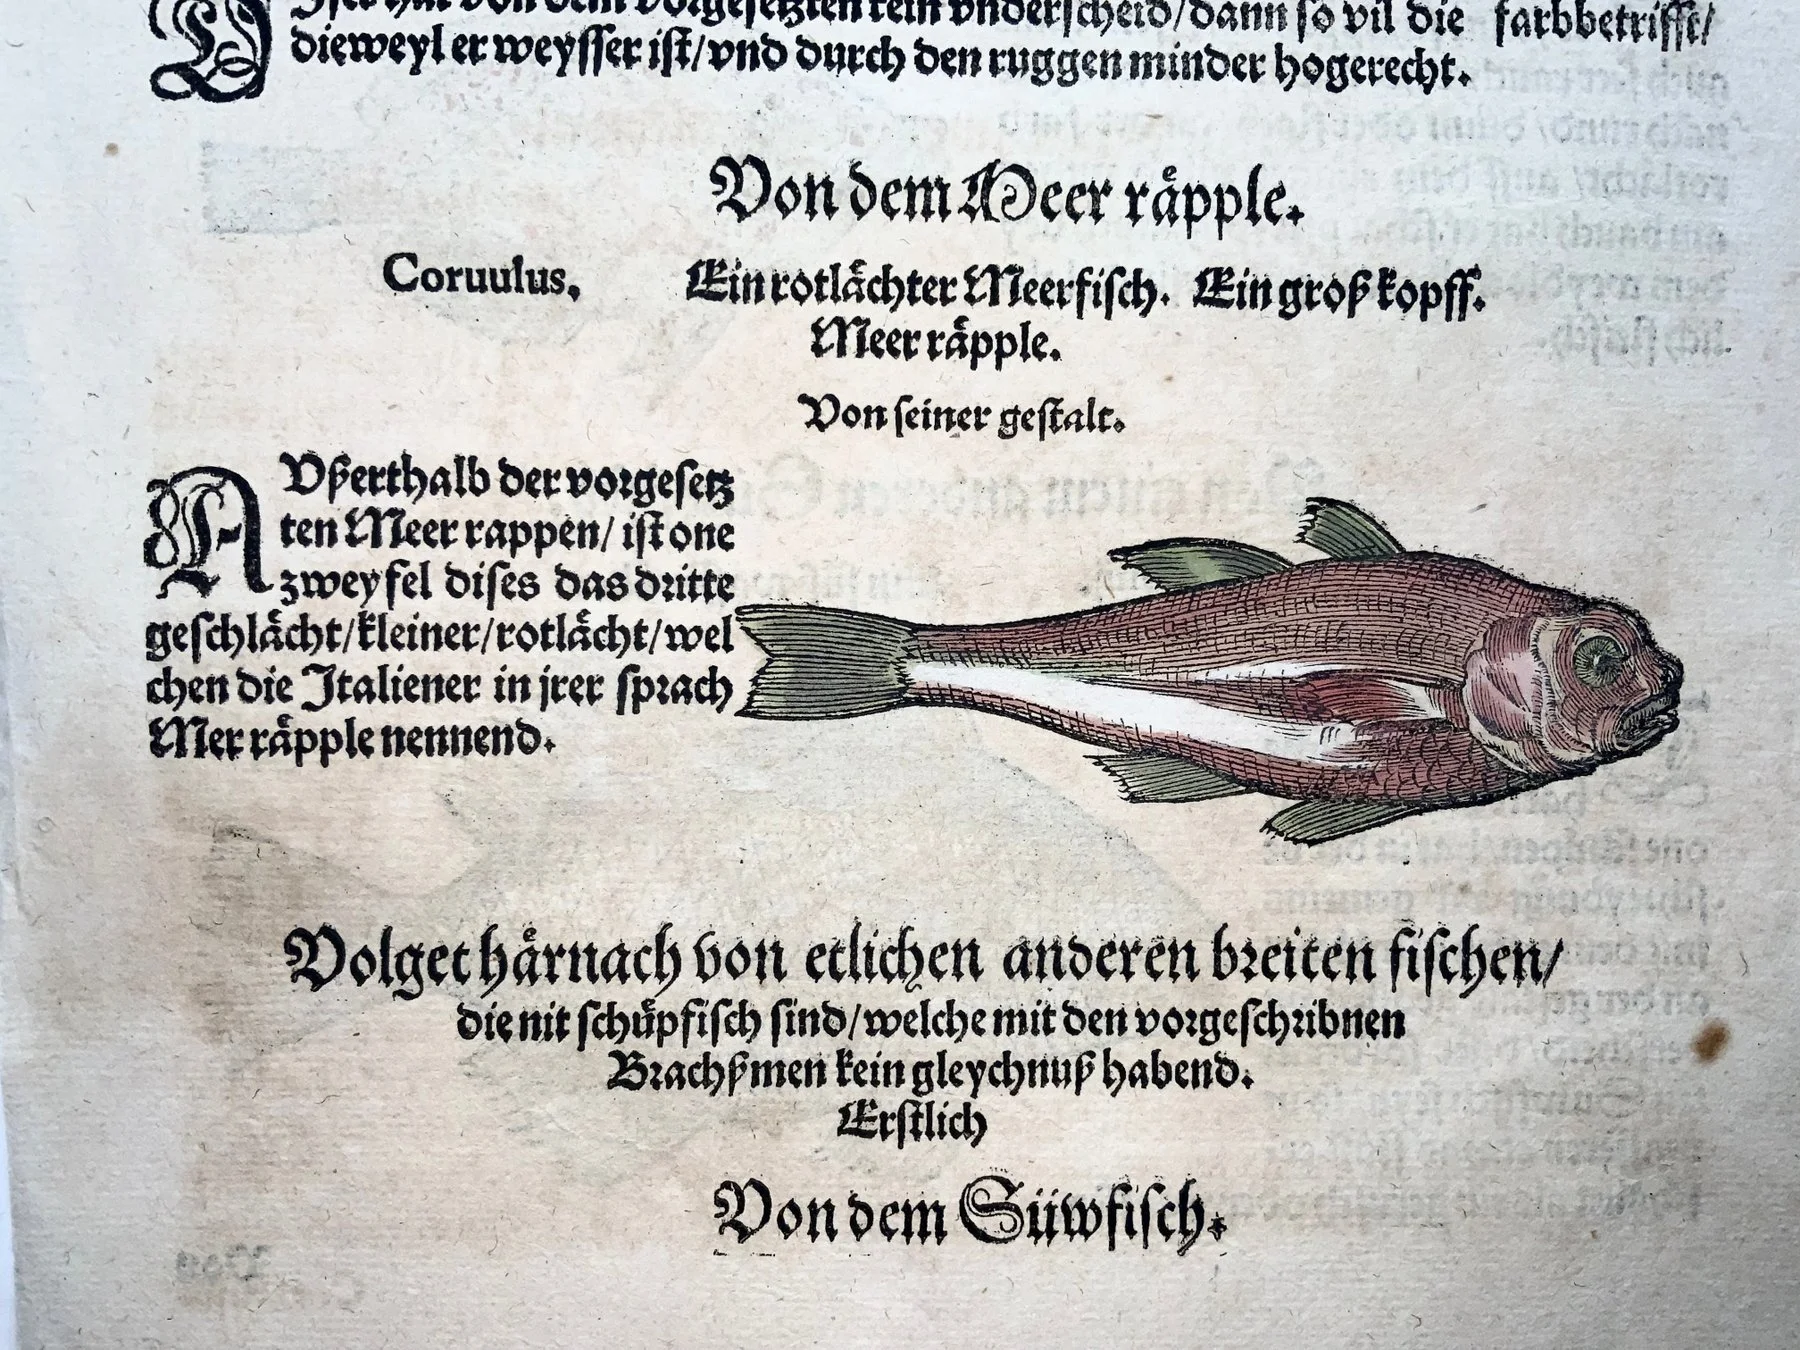 Diser hat von dem vorgesetzten kein vnderscheid/dann so vil die farb betrifft/
dieweyl er weysser ist/vnd durch den ruggen minder hogerecht.
Von dem Meer råpple.
Coruulus, Ein rotlåchter Meerfisch. Ein groß kopff.
Meer råpple.
Von seiner gestalt.
AVßerthalb der vorgesetz
ten Meer rappen/ ist one
zweyfel dises das dritte
geschlåcht/kleiner/rotlåcht/wel
chen die Italiener in jrer sprach
Mer råpple nennend.
Volget hårnach von etlichen anderen breiten fischen/
die nit schůpfisch sind/welche mit den vorgeschribnen
Brachßmen kein gleychnuß habend.
Erstlich
Von dem Süwfisch.